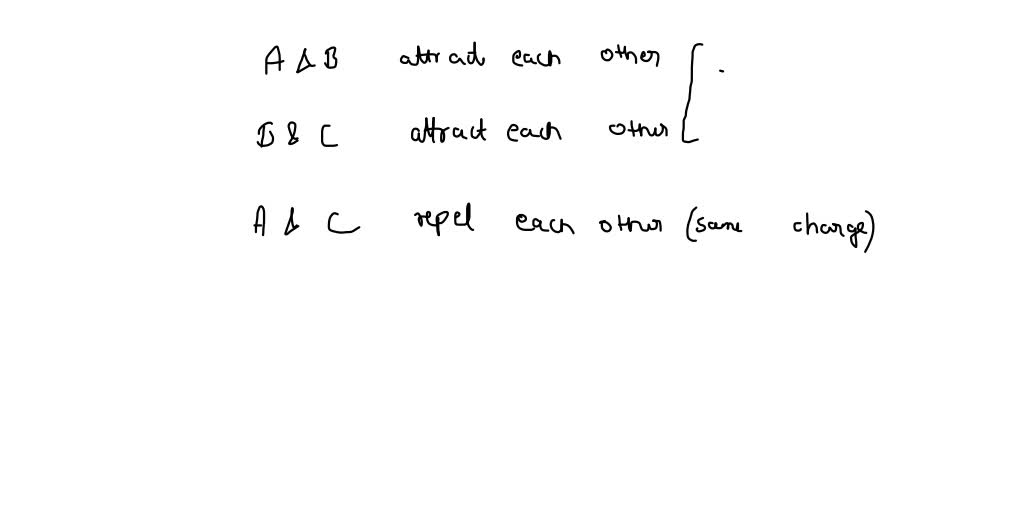 A & B attract each other
B & C attract each other
A & C repel each other (same charge)